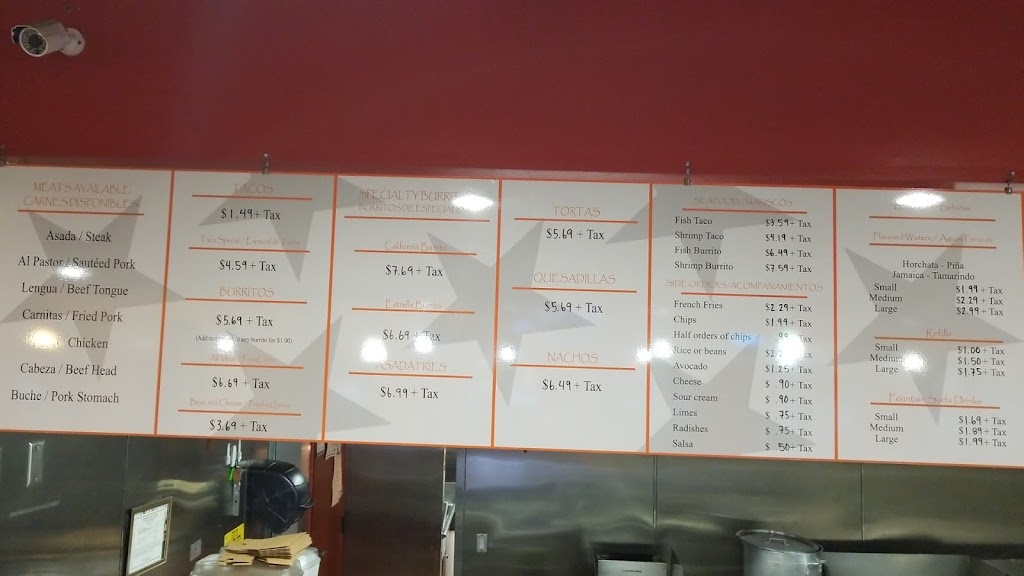 MEATS AVAILABLE
CARNES DISPONIBLES
Asada / Steak
Al Pastor / Sautéed Pork
Lengua / Beef Tongue
Carnitas / Fried Pork
Chicken
Cabeza / Beef Head
Buche / Pork Stomach
TACOS
$1.49 + Tax
Taco Special / Especial de Tacos
$4.59 + Tax
BURRITOS
$5.69 + Tax
any burrito for $1.00)
$6.69 + Tax
Bean and Cheese / Frijol y Queso
$3.69 + Tax
SPECIALTY
BURRITOS DE
California Burrito
$7.69 + Tax
Estrella Burrito
$6.69 + Tax
ASADA FRIES
$6.99 + Tax
TORTAS
$5.69 + Tax
QUESADILLAS
$5.69 + Tax
NACHOS
$6.49 + Tax
SEAFOOD / MARISCOS
Fish Taco $3.59 + Tax
Shrimp Taco $4.19 + Tax
Fish Burrito $6.49 + Tax
Shrimp Burrito $7.59 + Tax
SIDE ORDERS / ACOMPAÑAMIENTOS
French Fries $2.29 + Tax
Chips $1.99 + Tax
Half orders of chips .99 + Tax
Rice or beans + Tax
Avocado $1.25 + Tax
Cheese $ .90 + Tax
Sour cream $ .90 + Tax
Limes $ .75 + Tax
Radishes $ .75 + Tax
Salsa $ .50 + Tax
Bebidas
Flavored Waters / Aguas Frescas
Horchata - Piña
Jamaica - Tamarindo
Small $1.99 + Tax
Medium $2.29 + Tax
Large $2.99 + Tax
Refills
Small $1.00 + Tax
Medium $1.50 + Tax
Large $1.75 + Tax
Fountain Soda Drinks
Small $1.69 + Tax
Medium $1.89 + Tax
Large $1.99 + Tax